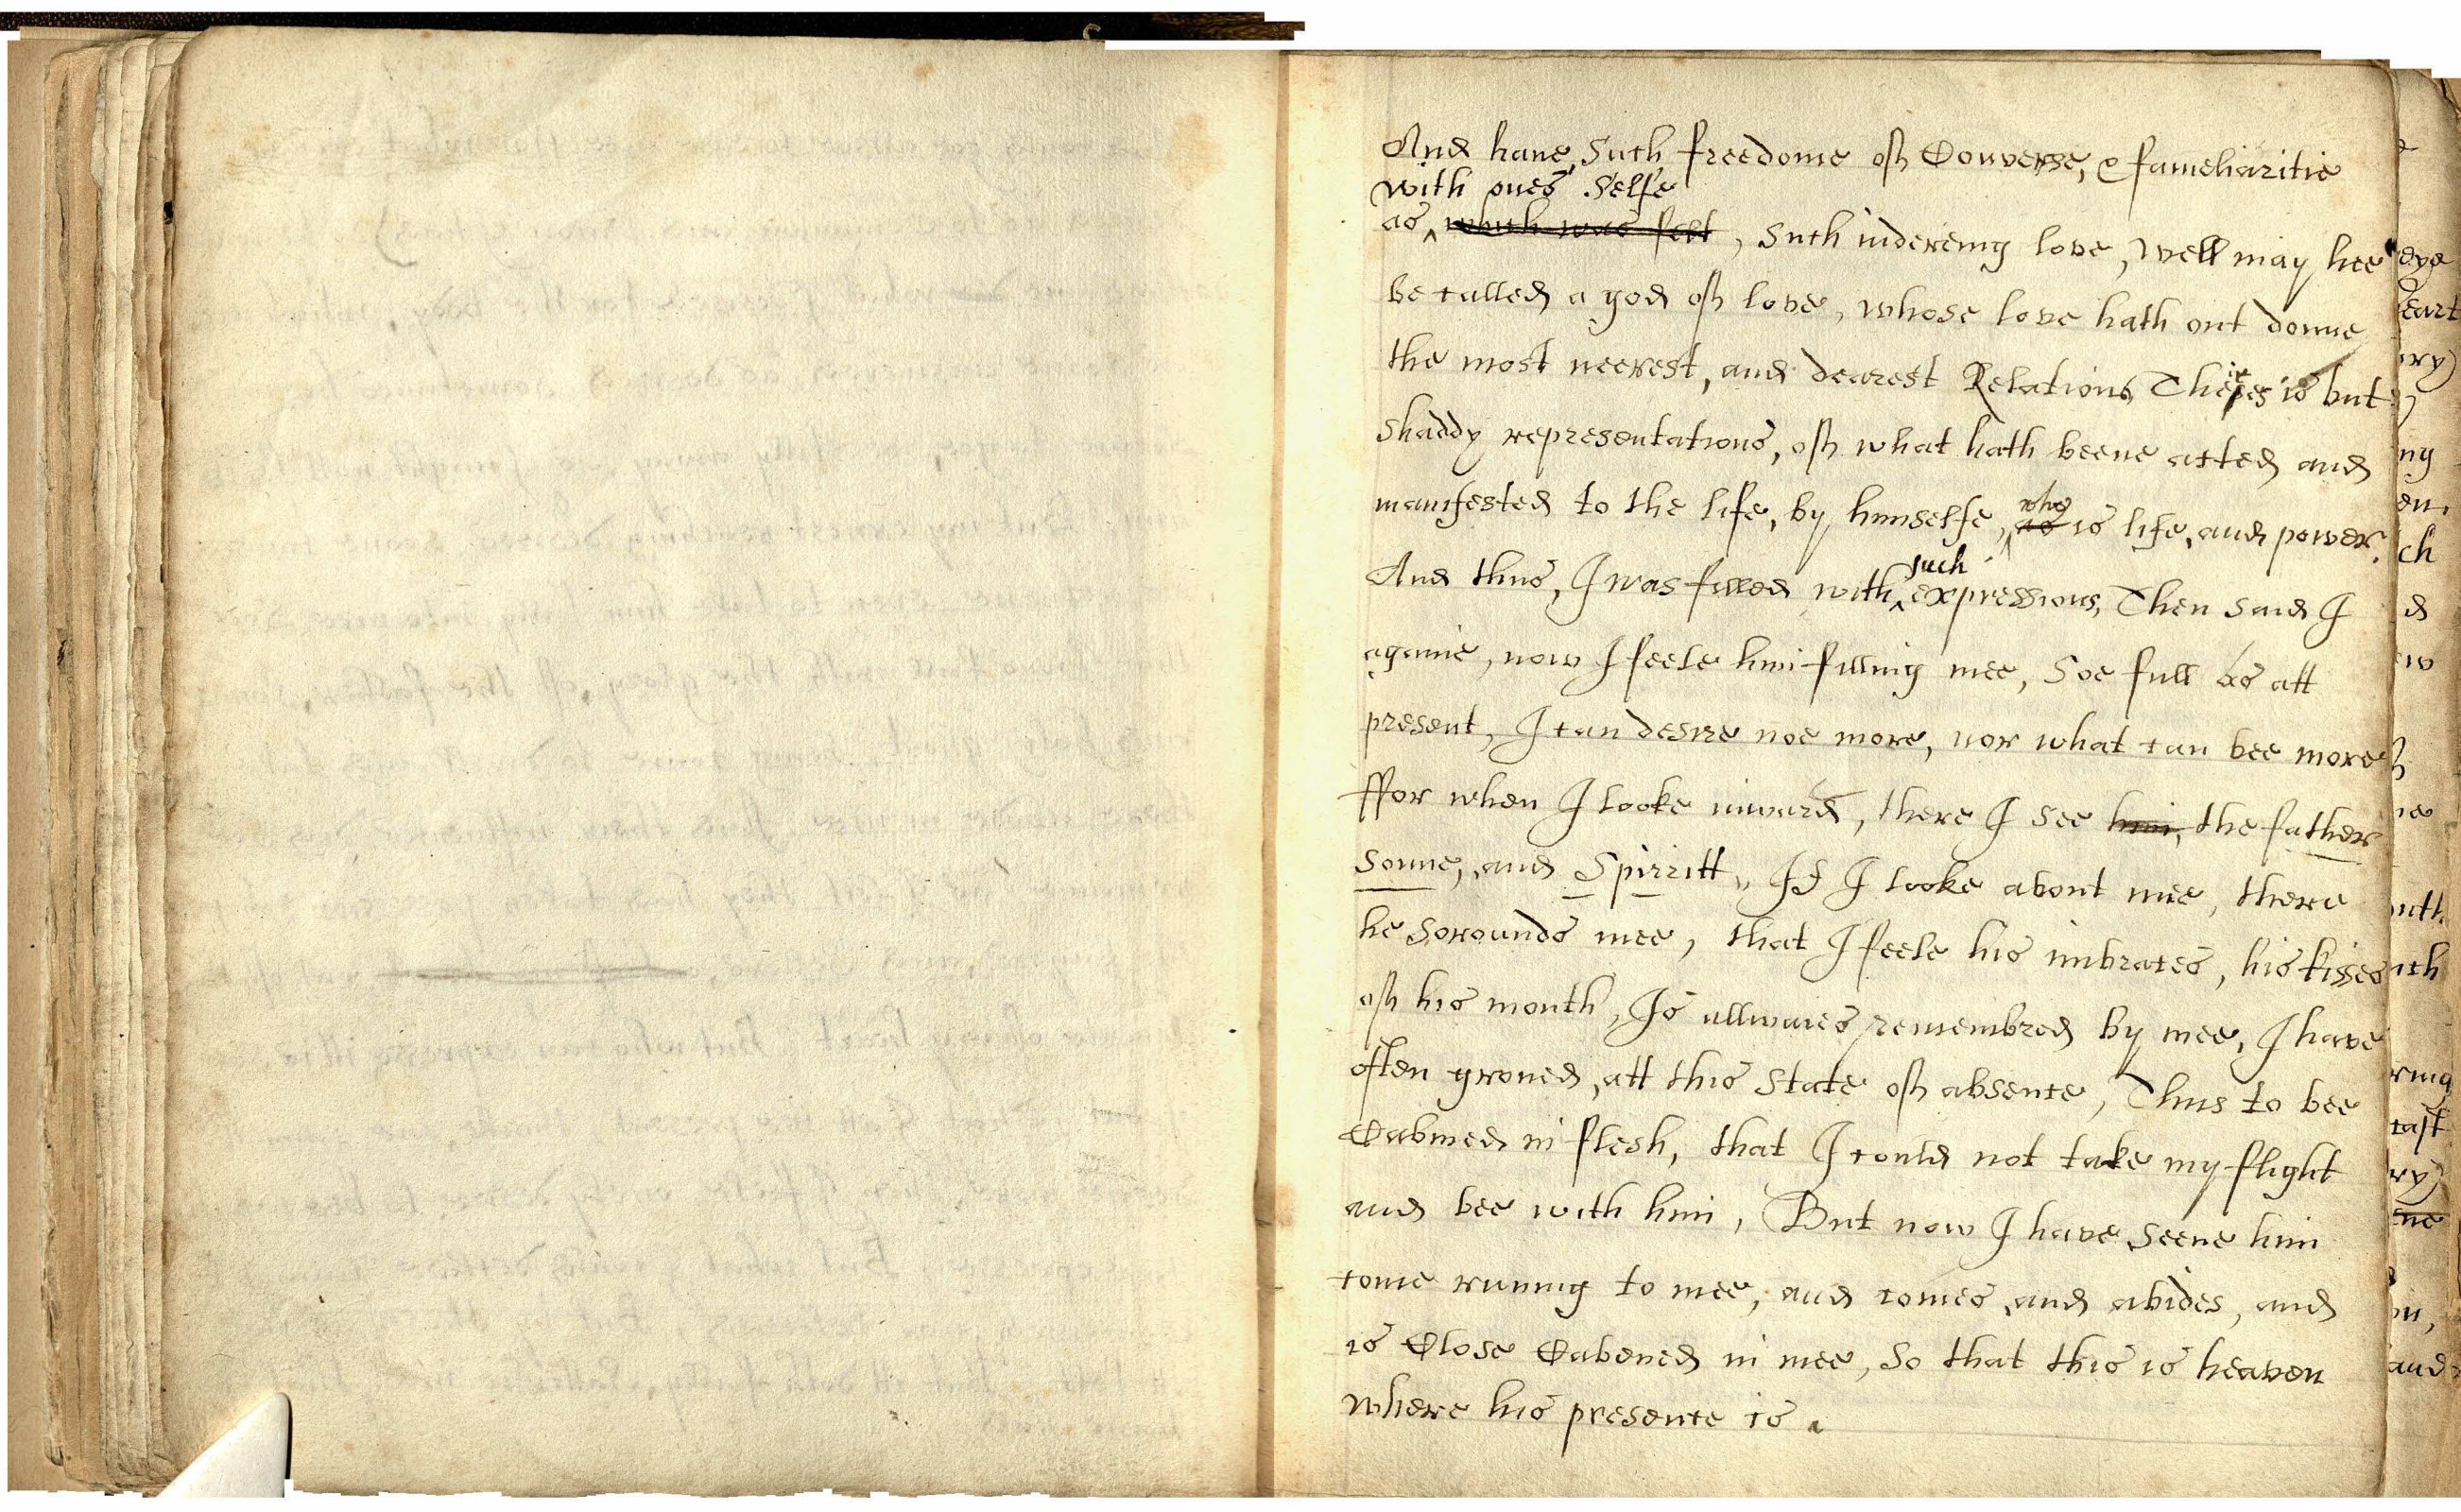 And have, Such freedome of Converse, & fameliaritie
with ones selfe
as ^ which was felt, Such indereing love, well may hee
be called a god of love, whose love hath out donne
the most neerest, and dearest Relations, Theires is but
shaddy representations, of what hath beene acted and
manifested to the life, by himselfe, ^ who as is life, and power.
And thus, I was filled with ^ such expressions, Then said I
againe, now I feele him filling mee, Soe full as att
present, I can desire noe more, nor what can bee more
ffor when I looke inward, there I see him, the father
sonne, and Spirritt, If I looke about mee, there
he sorounds mee, that I feele his imbraces, his kisses
of his mouth, Is allwaies remembred by mee, I have
often groned, att this State of absence, Thus to bee
Cabined in flesh, that I could not take my flight
and bee with him, But now I have seene him
come runing to mee, and comes, and abides, and
is Close Cabened in mee, so that this is heaven
where his presence is.